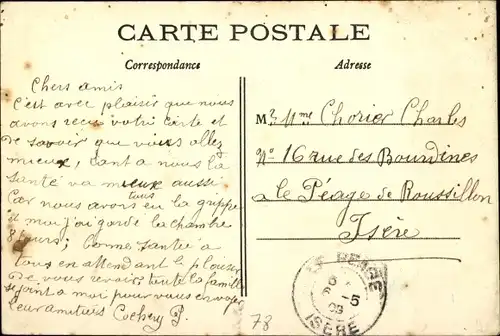 CARTE POSTALE
Correspondance
Adresse
Chers amis
C'est avec plaisir que nous
avons recu votre carte et
de savoir que vous allez
mieux, tant a nous la
santé va mieux aussi
tous
Car nous avons eu la grippe
et moi j'ai garde la chambre
8 jours; bonne santee a
tous en attendant le plaisir
de vous revoir toute la famille
se joint a moi pour vous envoyer
leur amitiees Cochery P.
M? Mme Chorier Charles
No 16 rue des Bourdines
a le Péage de Roussillon
Isère
LE PEAGE
ISÈRE
78